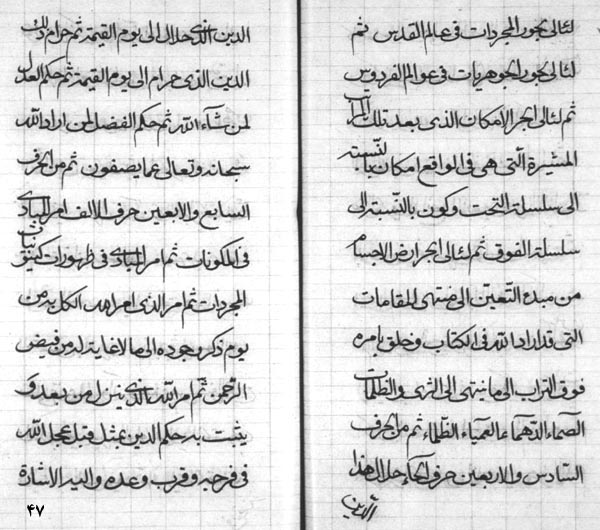 لئالی بحور المجردات فی عالم القدس ثم
لئالی بحور الجوهریات فی عوالم الفردوس
ثم لئالی ابحر الامکان الذی بعد تلک المراتب
المشیرة الّتی هی فی الواقع امکان بالنّسبته
الی سلسلة التحت وکون بالنّسبته الی
سلسلة الفوق ثم لئالی ابحر ارض الاجسام
من مبدء التّعین الی منتهی المقامات
التی قدار اد الله فی الکتاب وخلق بامره
فوق التراب الی ما ینتهی الی الثری والظلمات
الصّماء الدّهماء العمیاء الظّلماء ثم من الحرف
السّادس والاربعین حرف الحاء حلال هذا
الدّین
الدین الذی حلال الی یوم القیمة ثم حرام ذلک
الدین الذی حرام الی یوم القیمة ثم حکم العدل
لمن شآء الله ثم حکم الفضل لمن اراد الله
سبحانه وتعالی عما یصفون ثم من الحرف
السابع والاربعین حرف الالف امر المبادی
فی الملکونات ثم امر المبادی فی ظهورات کینونیات
المجردات ثم امر الذی امر الله الکل به من
یوم ذکر وجوده الی ما لا غایة له من فیض
الرّحمن ثم امر الله بالذی ینزل من بعد و
یثبت به حکم الدین بمثل قبل عجل الله
فی فرجه وقرب وعده والیه الاشارة
۴۷